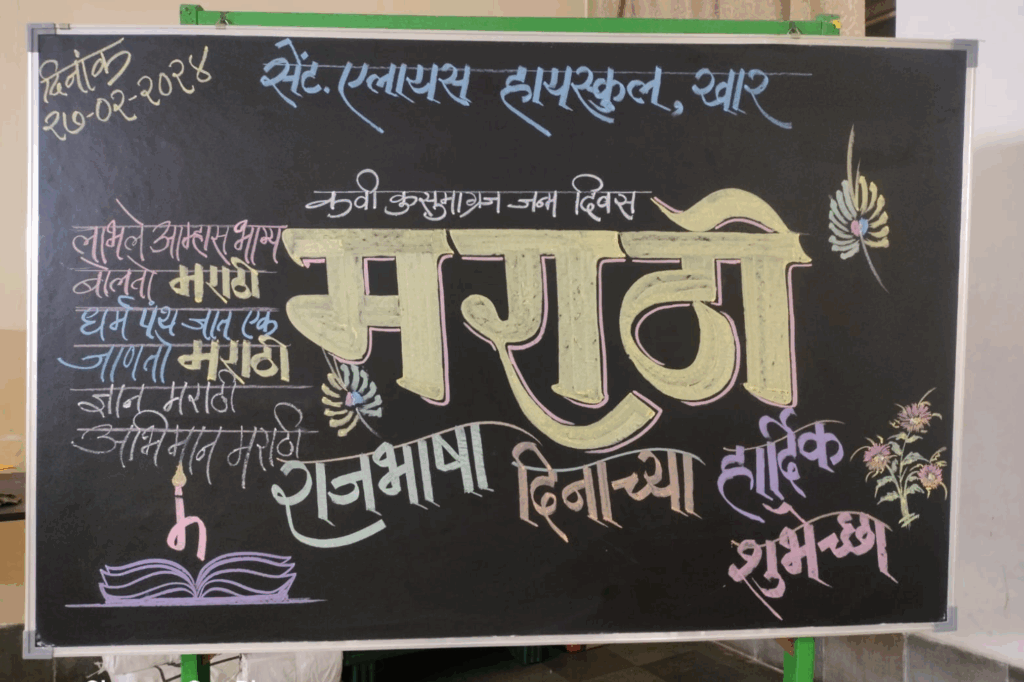 दिनांक
२७-०२-२०२४
सेंट. एलायस हायस्कुल, खार
कवी कुसुमाग्रज जन्म दिवस
मराठी
लाभले आम्हास भाग्य
बोलतो मराठी
धर्म पंथ जात एक
जाणतो मराठी
ज्ञान मराठी
अभिमान मराठी
राजभाषा दिनाच्या हार्दिक
शुभेच्छा